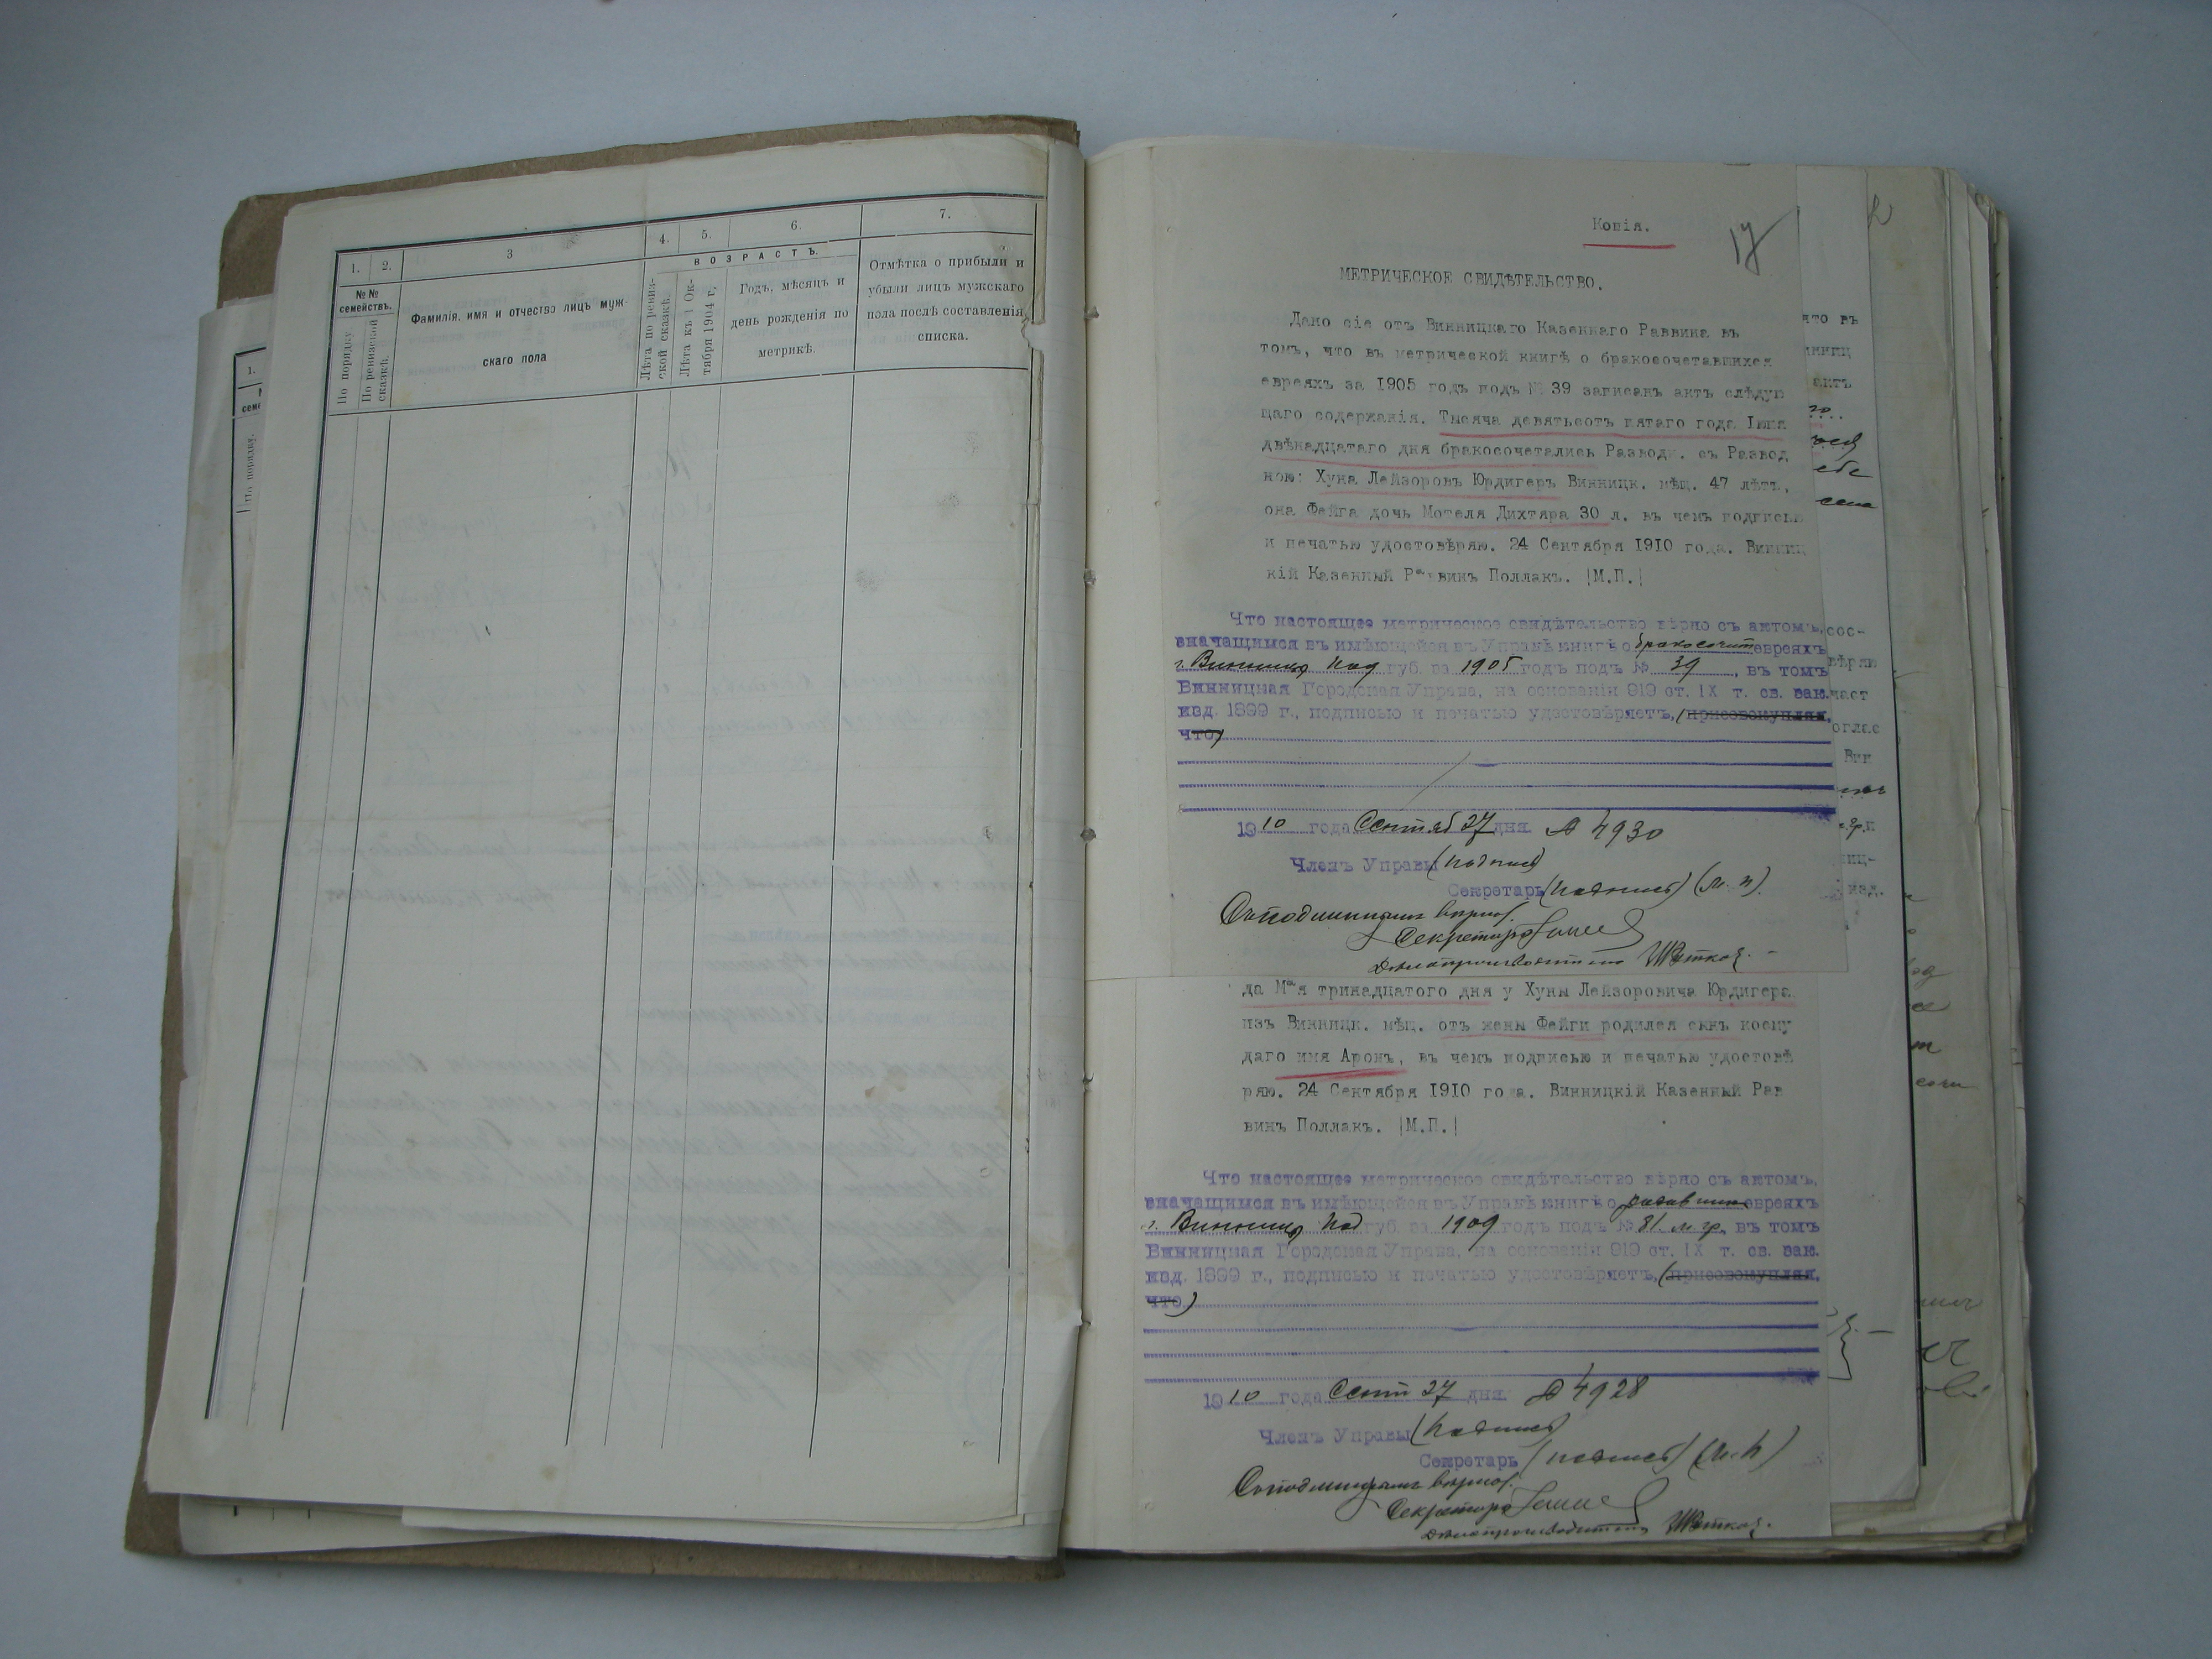 1. 2. 3 4. 5. 6. 7.
№№ семействъ.
По порядку
По ревизской сказкѣ.
Фамилія, имя и отчество лицъ муж-
скаго пола
ВОЗРАСТЪ.
Лѣта по ревиз-
ской сказкѣ.
Лѣта къ 1 Ок-
тября 1904 г.
Годъ, мѣсяцъ и
день рожденія по
метрикѣ.
Отмѣтка о прибыли и
убыли лицъ мужскаго
пола послѣ составленія
списка.
1.
По порядку.
Копія.
17
МЕТРИЧЕСКОЕ СВИДѢТЕЛЬСТВО.
Дано сіе отъ Винницкаго Казеннаго Раввина въ
томъ, что въ метрической книгѣ о бракосочетавшихся
евреяхъ за 1905 годъ подъ № 39 записанъ актъ слѣдую
щаго содержанія. Тысяча девятьсотъ пятаго года Іюня
двѣнадцатаго дня бракосочетались Разводн. съ Развод
ною: Хуна Лейзоровъ Юрдигеръ Винницк. мѣщ. 47 лѣтъ,
она Фейга дочь Мотеля Дихтяра 30 л. въ чемъ подписью
и печатью удостовѣряю. 24 Сентября 1910 года. Винниц
кій Казенный Раввинъ Поллакъ. |М.П.|
Что настоящее метрическое свидѣтельство вѣрно съ актомъ,
значащимся въ имѣющейся въ Управѣ книгѣ о бракосочет евреяхъ
г. Винницы Под губ. за 1905 годъ подъ № 39, въ томъ
Винницкая Городская Управа, на основаніи 919 ст. IX т. св. зак.
изд. 1899 г., подписью и печатью удостовѣряетъ, (присовокупляя,
что)
1910 года Сентяб 27 дня. № 4930
Членъ Управы (подпись)
Секретарь (подпись) (М. П.).
Съ подлиннымъ вѣрно.
Секретарь
Дѣлопроизводитель
да Мая тринадцатого дня у Хуны Лейзоровича Юрдигера
изъ Винницк. мѣщ. отъ жены Фейги родился сынъ коему
даго имя Аронъ, въ чемъ подписью и печатью удостовѣ
ряю. 24 Сентября 1910 года. Винницкій Казенный Рав
винъ Поллакъ. |М.П.|
Что настоящее метрическое свидѣтельство вѣрно съ актомъ,
значащимся въ имѣющейся въ Управѣ книгѣ о родивших евреяхъ
г. Винницы Под губ. за 1909 годъ подъ № 81. м. гр., въ томъ
Винницкая Городская Управа, на основаніи 919 ст. IX т. св. зак.
изд. 1899 г., подписью и печатью удостовѣряетъ, (присовокупляя,
что)
1910 года Сент 27 дня. № 4928
Членъ Управы (подпись)
Секретарь (подпись) (М. П)
Съ подлиннымъ вѣрно.
Секретарь
Дѣлопроизводитель